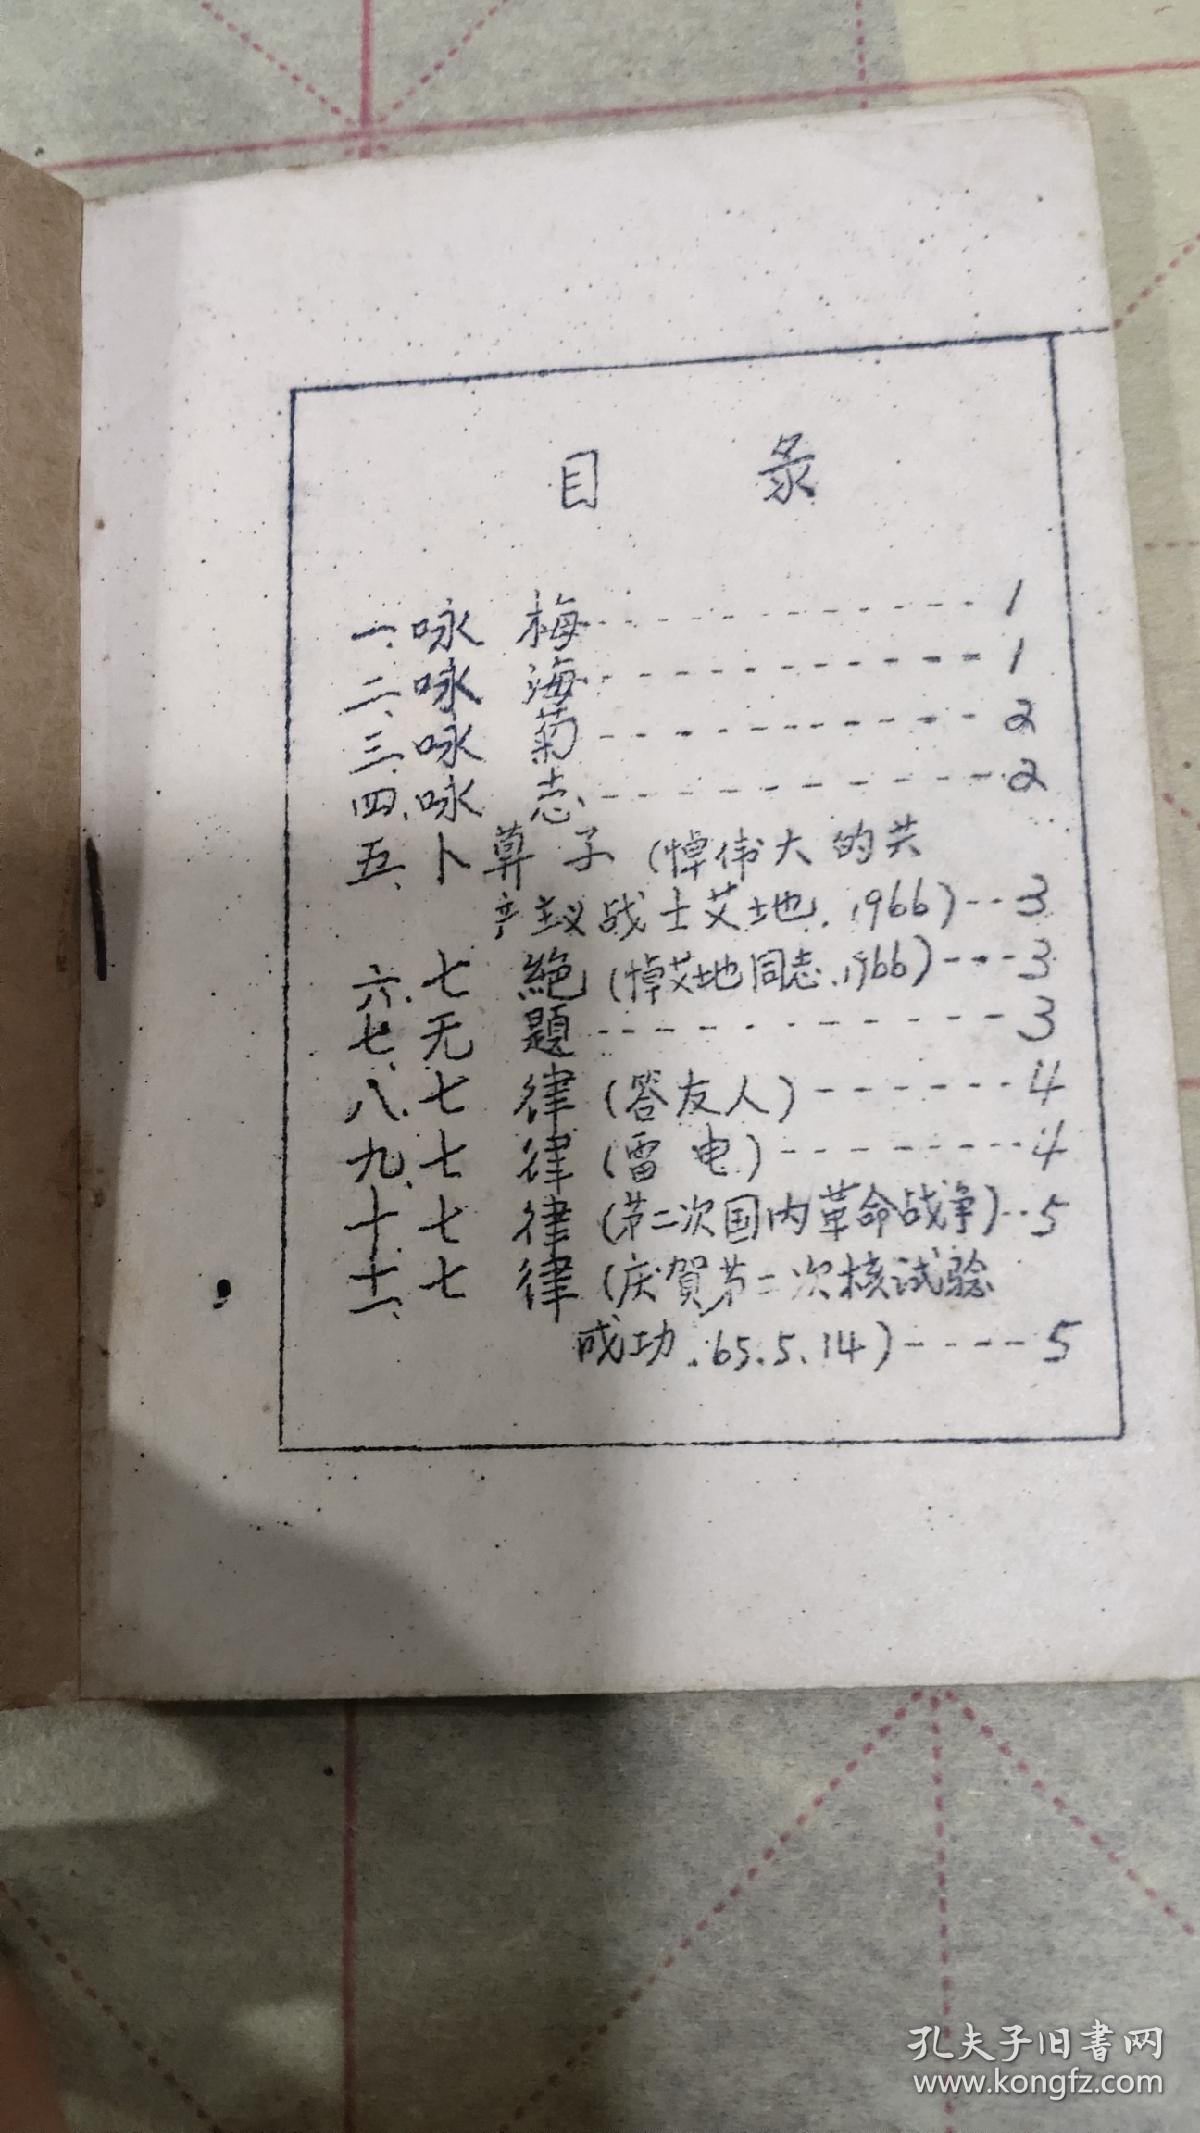 目 录
一、咏 梅------------1
二、咏 海------------1
三、咏 菊------------2
四、咏 志------------2
五、卜算子(悼伟大的共
产主义战士艾地.1966)--3
六、七 絶(悼艾地同志.1966)---3
七、无 題------------3
八、七 律(答友人)------4
九、七 律(雷 电)--------4
十、七 律(第二次国内革命战争)--5
十一、七 律(庆賀第二次核试验
成功.65.5.14)----5
孔夫子旧書网
www.kongfz.com